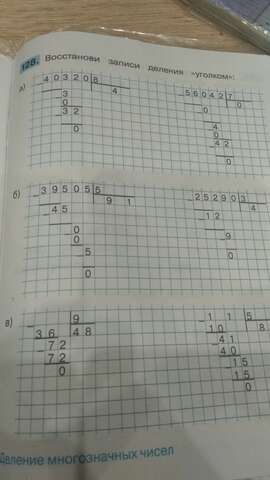 125. Восстанови записи деления «уголком»:
а)
4 0 3 2 0 8
4
3
0
3 2
0
5 6 0 4 2 7
0
0
4
0
4 2
0
б)
3 9 5 0 5 5
9 1
4 5
0
0
5
0
2 5 2 9 0 3
4
1 2
9
0
в)
9
3 6 4 8
7 2
7 2
0
1 1 5
1 0 8
4 1
4 0
1 5
1 5
0
Деление многозначных чисел